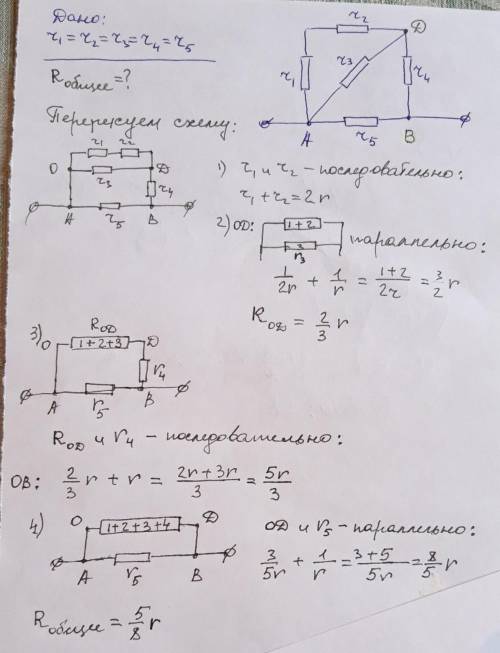 Дано:
r₁ = r₂ = r₃ = r₄ = r₅
Rобщее = ?
r₂
Д
r₁
r₃
r₄
A
r₅
B
Перерисуем схему:
r₁ r₂
O
r₃
Д
r₄
A
r₅
B
1) r₁ и r₂ - последовательно:
r₁ + r₂ = 2r
2) OД:
1+2
3
r₃
параллельно:
1/2r + 1/r = (1+2)/2r = 3/2 r
RОД = 2/3 r
3)
RОД
O
1+2+3
Д
r₄
A
r₅
B
RОД и r₄ - последовательно:
OB: 2/3 r + r = (2r+3r)/3 = 5r/3
4)
O
1+2+3+4
Д
A
r₅
B
OД и r₅ - параллельно:
3/5r + 1/r = (3+5)/5r = 8/5 r
Rобщее = 5/8 r